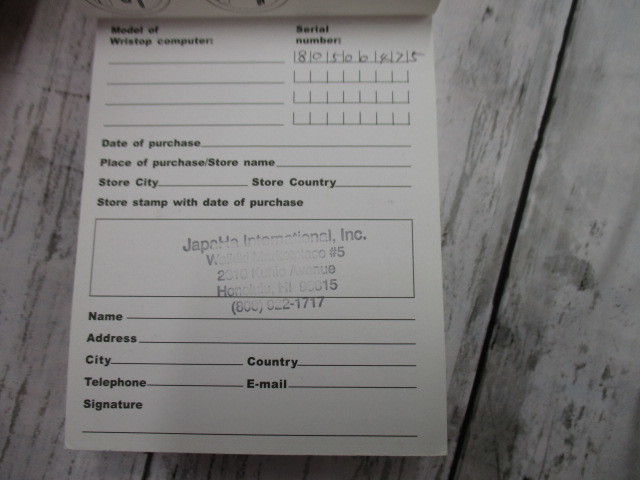 Model of
Wristop computer:
Serial
number:
Date of purchase
Place of purchase/Store name
Store City Store Country
Store stamp with date of purchase
JapaHa International, Inc.
#5
Avenue
Honolulu, HI
Name
Address
City Country
Telephone E-mail
Signature